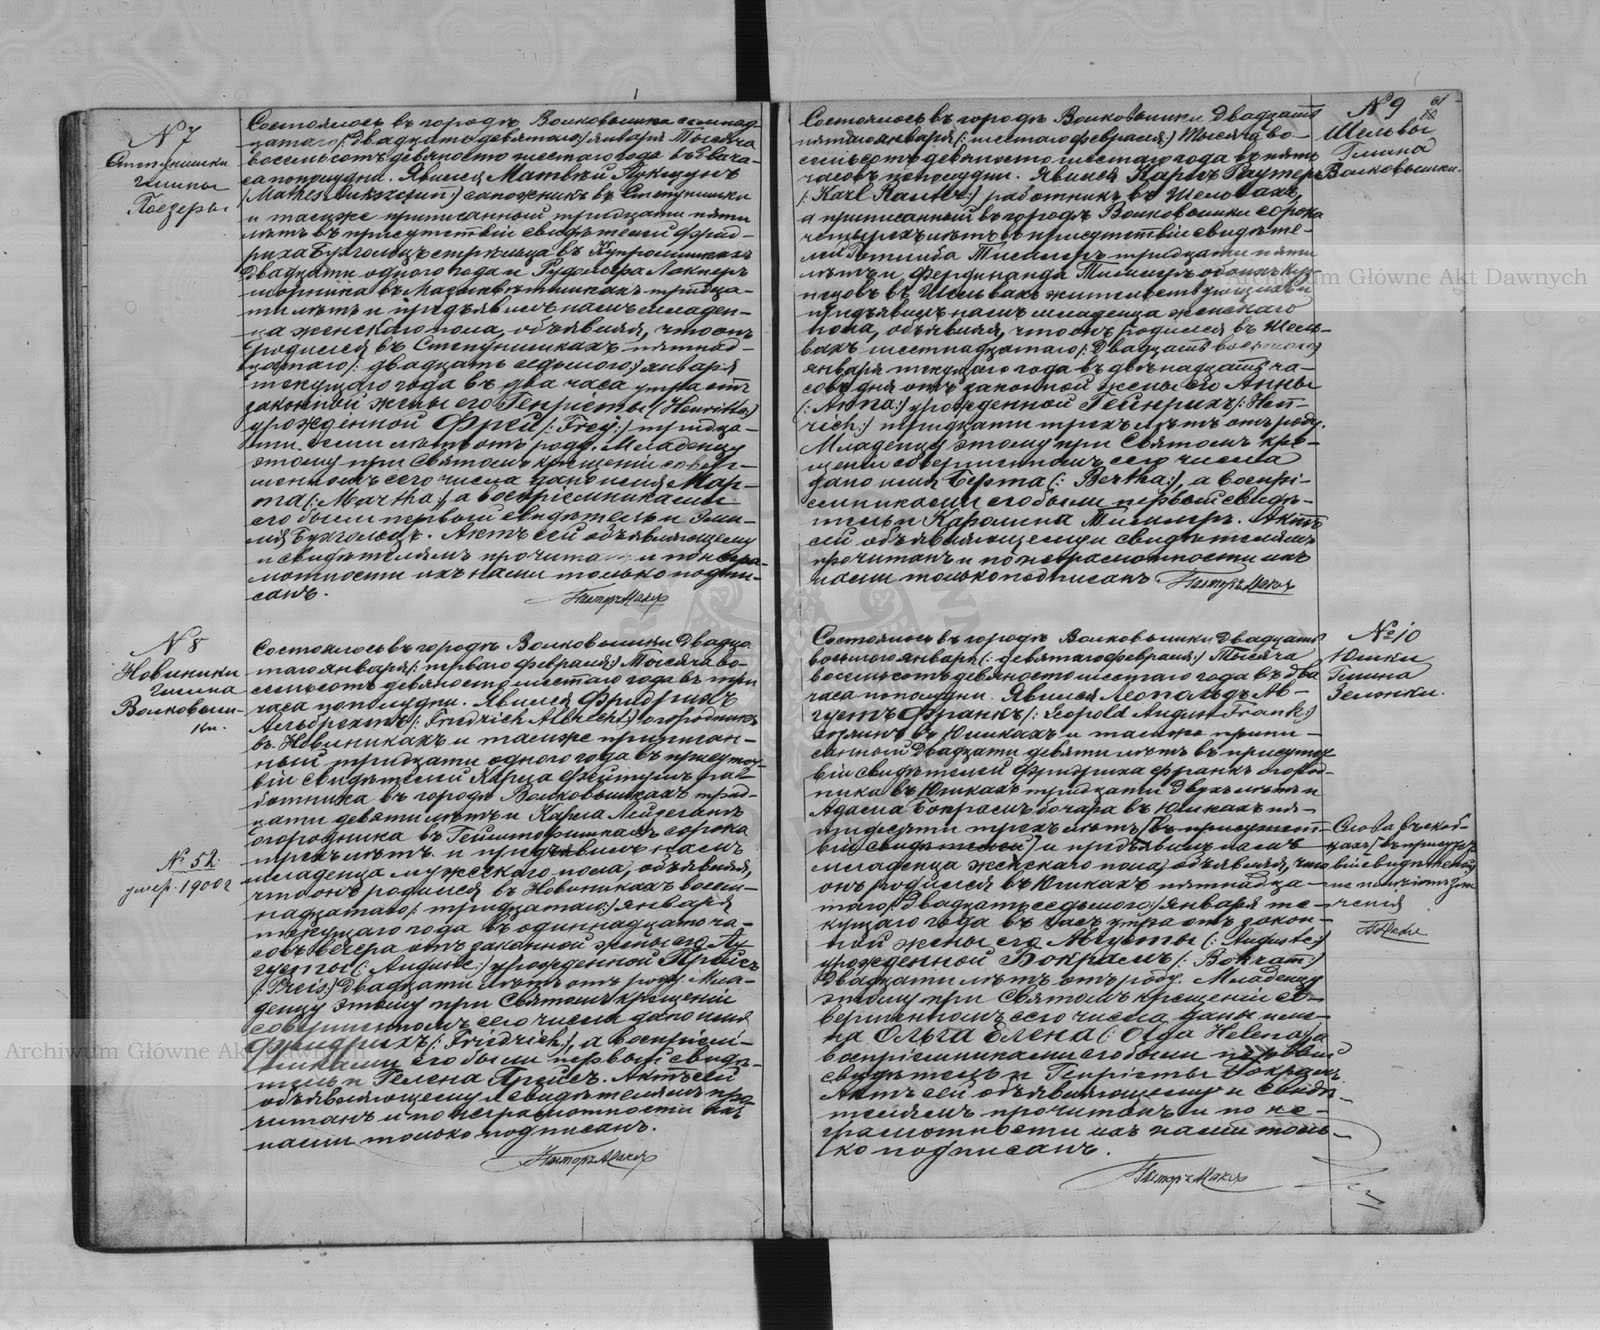 № 7
гмины
Состоялось въ городѣ Волковышки семнад-
цатаго /: двадцать девятаго:/ января тысяча
восемьсотъ девяносто шестаго года въ два ча-
са пополудни. Явился Матвей
сапожникъ въ
и тамже приписанный тридцати пяти
лѣтъ въ присутствіи свидѣтелей Фрид-
риха
двадцати одного года и Рудольфа
тридца-
ти лѣтъ и предъявилъ намъ младен-
ца женскаго пола, объявляя, что онъ
родился въ пятнад-
цатаго /: двадцать седьмаго:/ января
текущаго года въ два часа утра отъ
законной жены его Генріеты /: Henriette:/
урожденной Фрей /: Frey:/ тридца-
ти лѣтъ отъ роду. Младенцу
этому при Святомъ крещеніи совер-
шенномъ сего числа дано имя Мар-
та /: Martha:/, а воспріемниками
его были первый свидѣтель и Эми-
лія Бухгольцъ. Актъ сей объявляющему
и свидѣтелямъ прочитанъ и по негра-
мотности ихъ нами только подпи-
санъ.
Пасторъ
№ 8
Новиники
гмина
Волковыш-
ки.
Состоялось въ городѣ Волковышки двадца-
таго января /: перваго февраля:/ тысяча во-
семьсотъ девяносто шестаго года въ три
часа пополудни. Явился Фридрихъ
Альбрехтъ /: Friedrich Albrecht:/ огородникъ
въ Новиникахъ и тамже приписан-
ный тридцати одного года въ присутст-
віи свидѣтелей Карла раб-
ботника въ городѣ Волковышкахъ трид-
цати девяти лѣтъ и Карла
огородника въ сорока
трехъ лѣтъ и предъявилъ намъ
младенца мужескаго пола, объявляя,
что онъ родился въ Новиникахъ восем-
надцатаго /: тридцатаго:/ января
текущаго года въ одиннадцать ча-
совъ вечера отъ законной жены его Ав-
густы /: Auguste:/ урожденной Прейсъ
/: Preis:/ двадцати лѣтъ отъ роду. Мла-
денцу этому при Святомъ крещеніи
совершенномъ сего числа дано имя
Фридрихъ /: Friedrich:/, а воспріем-
никами его были первый свидѣ-
тель и Гелена Прейсъ. Актъ сей
объявляющему и свидѣтелямъ про-
читанъ и по неграмотности ихъ
нами только подписанъ.
Пасторъ
№ 52.
умер. 1900 г
№ 9
Шельвы
Гмина
Волковышки.
Состоялось въ городѣ Волковышки двадцать
пятаго января /: шестаго февраля:/ тысяча во-
семьсотъ девяносто шестаго года въ пять
часовъ пополудни. Явился Карлъ Раутеръ
/: Karl Rauter:/ работникъ въ Шельвахъ,
а приписанный въ городѣ Волковышки сорока
четырехъ лѣтъ въ присутствіи свидѣте-
лей Готлиба тридцати пяти
лѣтъ и Фердинанда обоихъ куз-
нецовъ въ Шельвахъ жительствующихъ и
предъявилъ намъ младенца женскаго
пола, объявляя, что онъ родился въ Шель-
вахъ шестнадцатаго /: двадцать восьмаго:/
января текущаго года въ двѣнадцать ча-
совъ дня отъ законной жены его Анны
/: Anna:/ урожденной Гейнрихъ /: Hein-
rich:/ тридцати трехъ лѣтъ отъ роду.
Младенцу этому при Святомъ кре-
щеніи совершенномъ сего числа
дано имя Берта /: Bertha:/, а воспрі-
емниками его были первый свидѣ-
тель и Каролина Актъ
сей объявляющему и свидѣтелямъ
прочитанъ и по неграмотности ихъ
нами только подписанъ Пасторъ
№ 10
Юшки
Гмина
Зеленки.
Состоялось въ городѣ Волковышки двадцать
восьмаго января /: девятаго февраля:/ тысяча
восемьсотъ девяносто шестаго года въ два
часа пополудни. Явился Леопольдъ Ав-
густъ Франкъ /: Leopold August Frank:/
въ Юшкахъ и тамже припи-
санный двадцати девяти лѣтъ въ присутст-
віи свидѣтелей Фридриха Франкъ огород-
ника въ Юшкахъ тридцати двухъ лѣтъ и
Адама Бокрамъ бочара въ Юшкахъ пя-
тидесяти трехъ лѣтъ /въ присутст-
віи свидѣтелей/ и предъявилъ намъ
младенца женскаго пола, объявляя, что
онъ родился въ Юшкахъ пятнадца-
таго /: двадцать седьмаго:/ января те-
кущаго года въ часъ утра отъ закон-
ной жены его Августы /: Auguste:/
урожденной Бокрамъ /: Bokram:/
двадцати лѣтъ отъ роду. Младенцу
этому при Святомъ крещеніи со-
вершенномъ сего числа даны име-
на Ольга Елена /: Olga Helena:/, а
воспріемниками его были первый
свидѣтель и Генріета Бокрамъ.
Актъ сей объявляющему и свидѣ-
телямъ прочитанъ и по не-
грамотности ихъ нами толь-
ко подписанъ.
Пасторъ
Слова въ скоб-
кахъ /въ присутст-
віи свидѣтелей/
не
чения